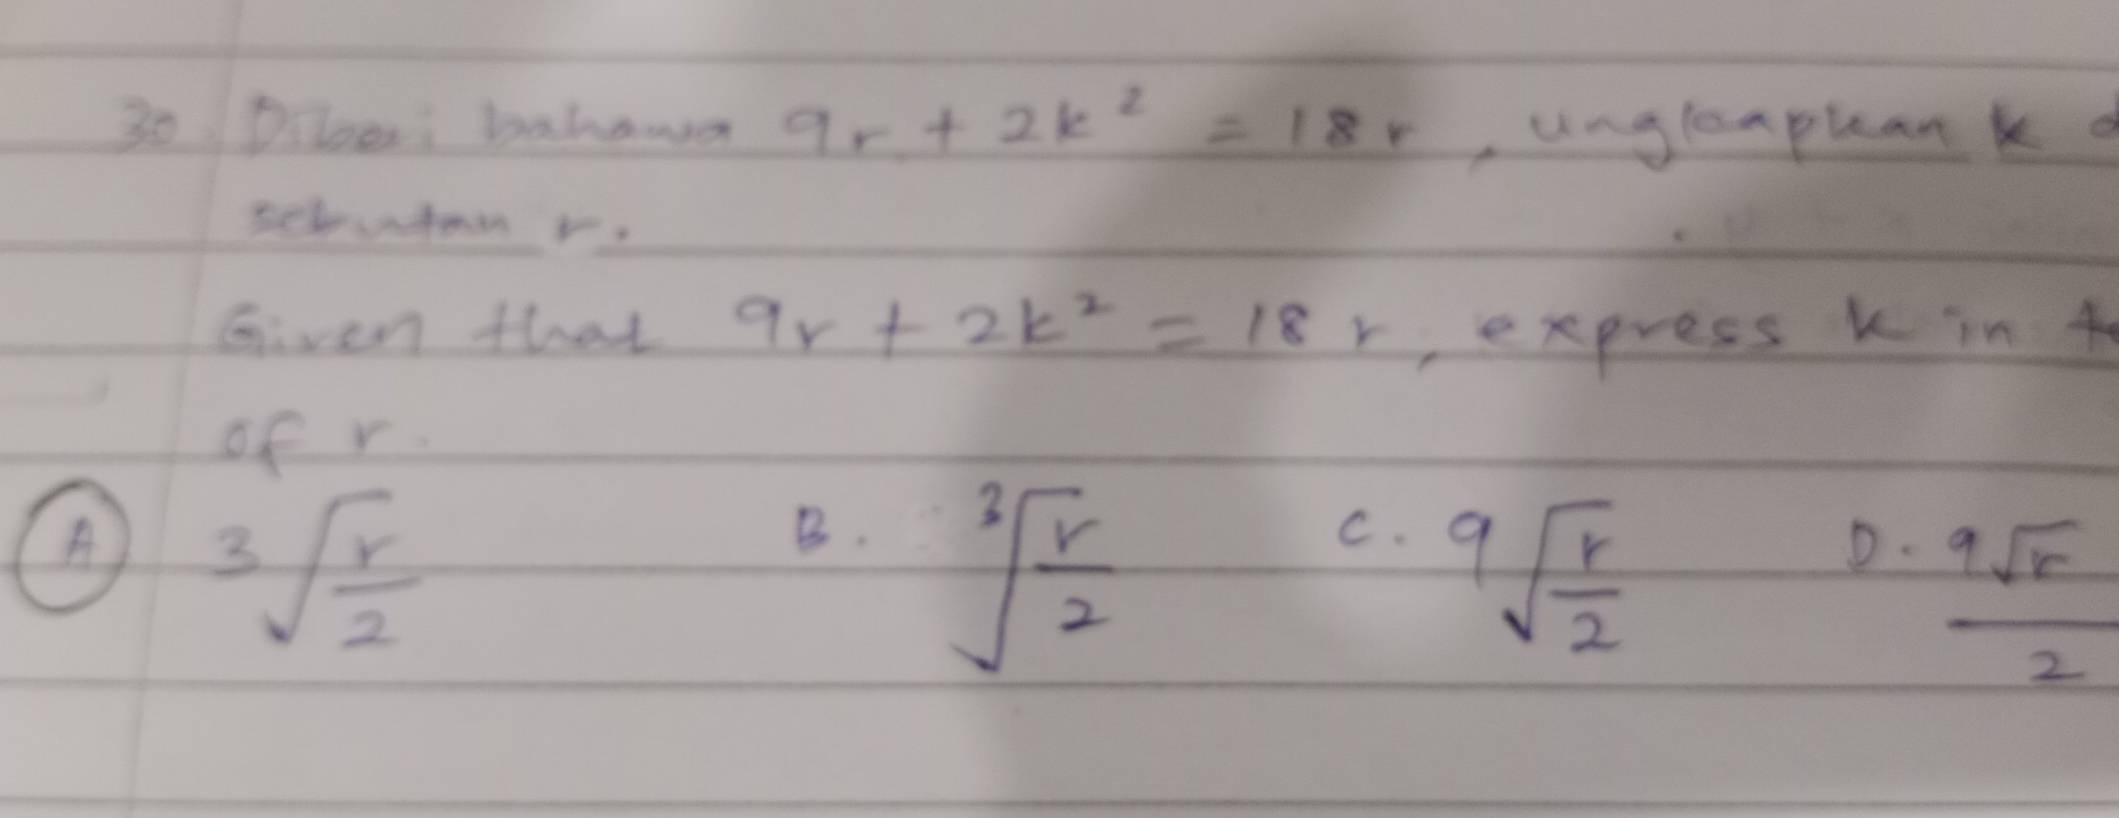 30. Diberi bahawa 9r + 2k² = 18r, ungkapkan k d
sebutan r.
Given that 9r + 2k² = 18r, express k in te
of r.
A 3√(r/2) B. ³√(r/2) C. 9√(r/2) D. 9√r/2